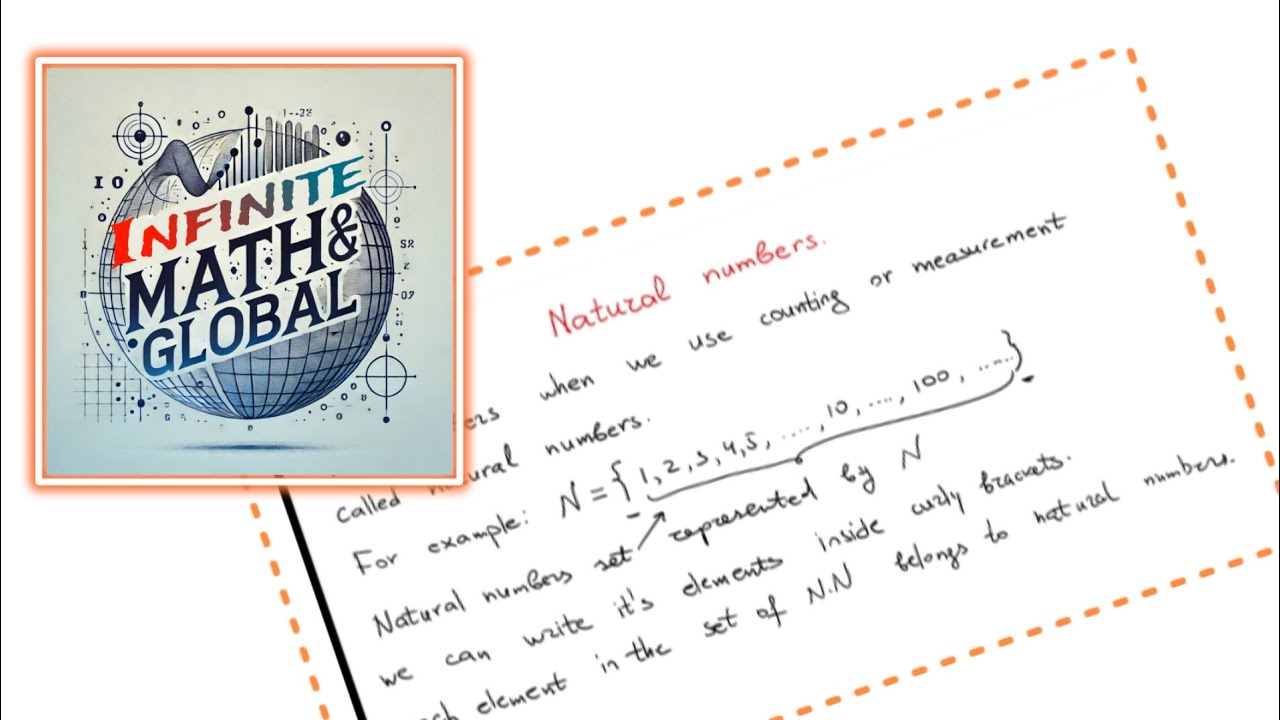 INFINITE
MATH &
GLOBAL
Natural numbers.
when we use counting or measurement
called natural numbers.
For example: N = {1, 2, 3, 4, 5, ...., 10, ...., 100, .....}
Natural numbers set represented by N
we can write it's elements inside curly brackets.
element in the set of N.N belongs to natural numbers.